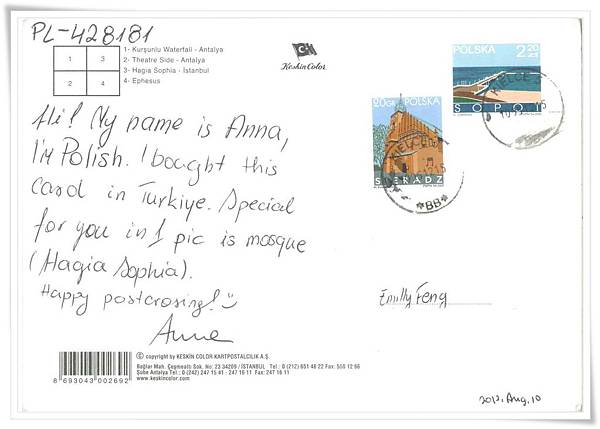 PL-428181
1 3
2 4
1- Kurşunlu Waterfall - Antalya
2- Theatre Side - Antalya
3- Hagia Sophia - İstanbul
4- Ephesus
Keskin Color
POLSKA 2,20 ZŁ
SOPOT
20GR POLSKA
SIERADZ
KIELCE
*BB*
Hi! My name is Anna,
I'm Polish. I bought this
card in Turkiye. Special
for you in 1 pic is mosque
(Hagia Sophia).
Happy postcrosing!
Anne
Emilly Feng
© copyright by KESKİN COLOR KARTPOSTALCILIK A.Ş.
Bağlar Mah. Çeşmealtı Sok. No: 23 34209 / İSTANBUL Tel. : 0 (212) 651 48 22 Fax: 550 12 66
Şube Antalya Tel.: 0 (242) 247 15 41 - 247 16 11 Fax: 247 16 11
www.keskincolor.com
8 693043 002692
2012. Aug. 10